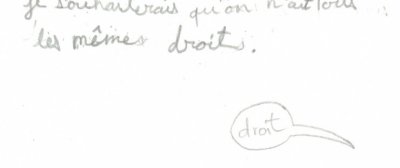 je souhaiterais qu'on n'ait tous
les mêmes droit.
droit